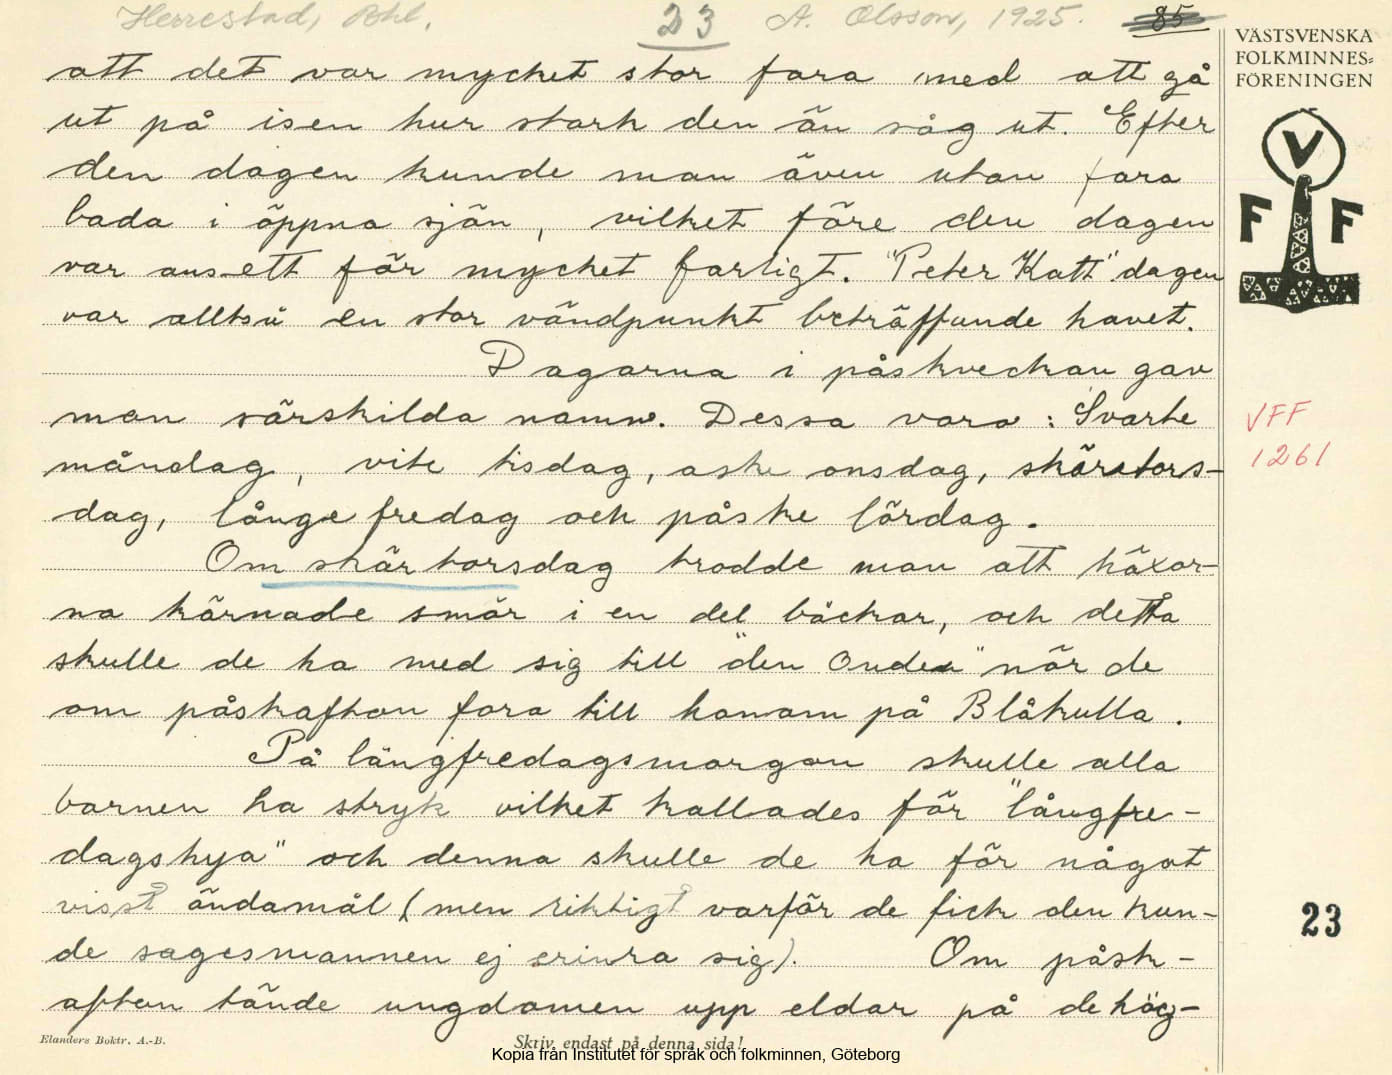 Herrestad, Bhl. 23 A. Olsson, 1925. 85
VÄSTSVENSKA
FOLKMINNES-
FÖRENINGEN
V
F F
att det var mycket stor fara med att gå
ut på isen hur stark den än såg ut. Efter
den dagen kunde man även utan fara
bada i öppna sjön, vilket före den dagen
var ansett för mycket farligt. "Peter Katt" dagen
var alltså en stor vändpunkt beträffande havet.
Dagarna i påskveckan gav
man särskilda namn. Dessa voro: Svarte
måndag, vite tisdag, aske onsdag, skärstors-
dag, långe fredag och påske lördag.
VFF
1261
Om skärtorsdag trodde man att häxor-
na kärnade smör i en del bäckar, och detta
skulle de ha med sig till "den onden" när de
om påskafton fora till honom på Blåkulla.
På långfredagsmorgon skulle alla
barnen ha stryk vilket kallades för "långfre-
dagshya" och denna skulle de ha för något
visst ändamål (men riktigt varför de fick den kun-
de sagesmannen ej erinra sig). Om påsk-
afton tände ungdomen upp eldar på de hög-
23
Elanders Boktr. A.-B.
Skriv endast på denna sida!
Kopia från Institutet för språk och folkminnen, Göteborg